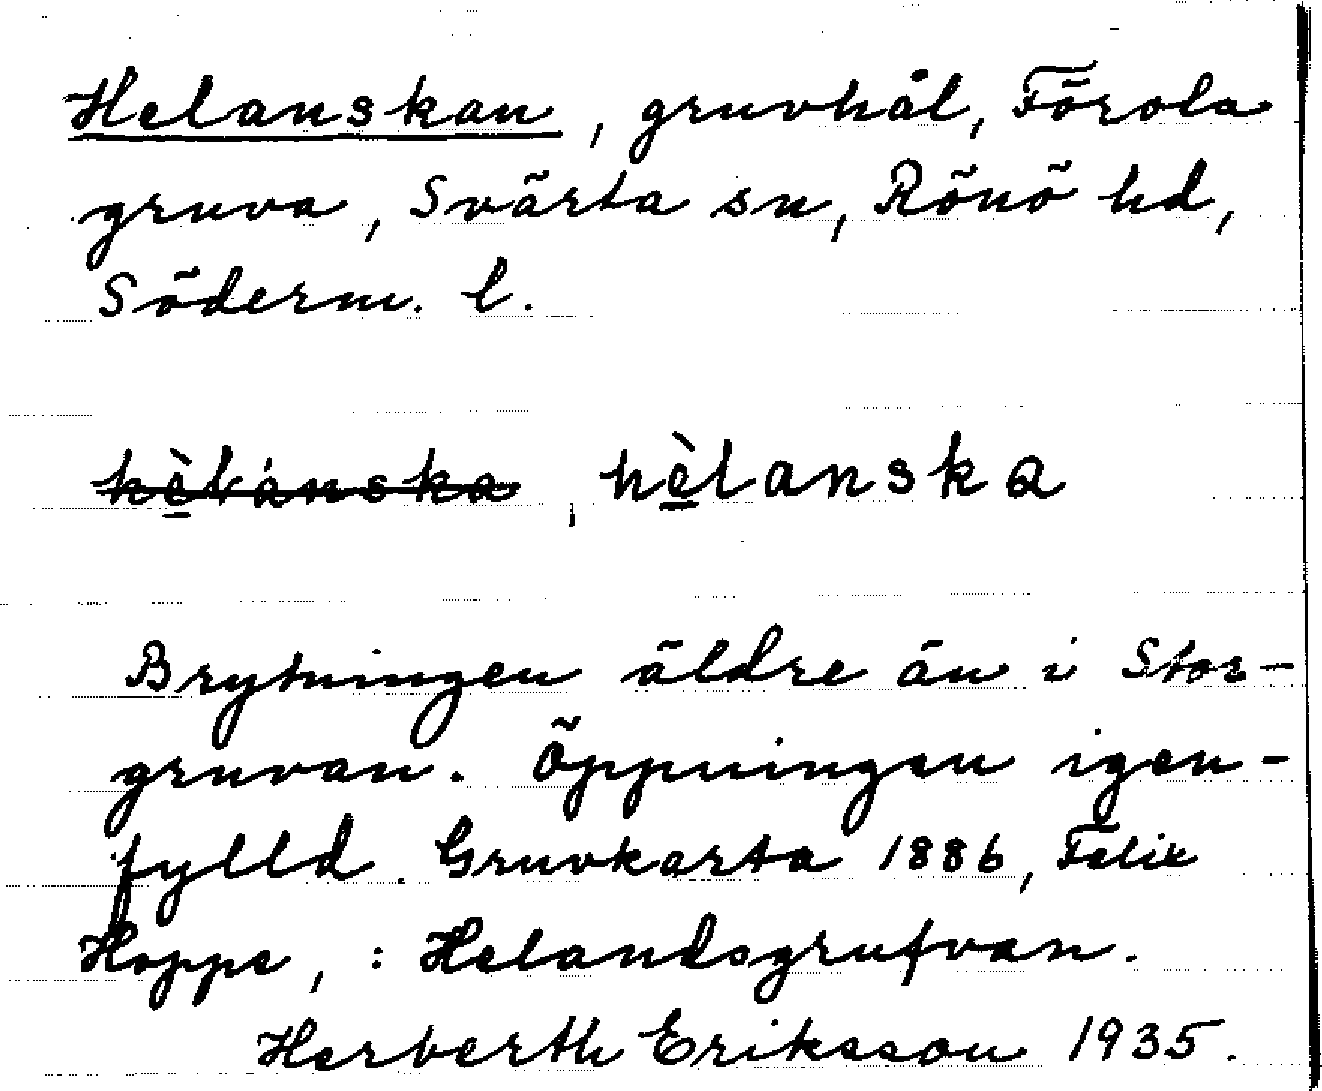 Helanskan, gruvhål, Förola
gruva, Svärta sn, Rönö hd,
Söderm. l.
hèlánska, hèlanska
Brytningen äldre än i Stor-
gruvan. Öppningen igen-
fylld. Gruvkarta 1886, Felix
Hoppe, : Helandsgrufvan.
Herberth Eriksson 1935.